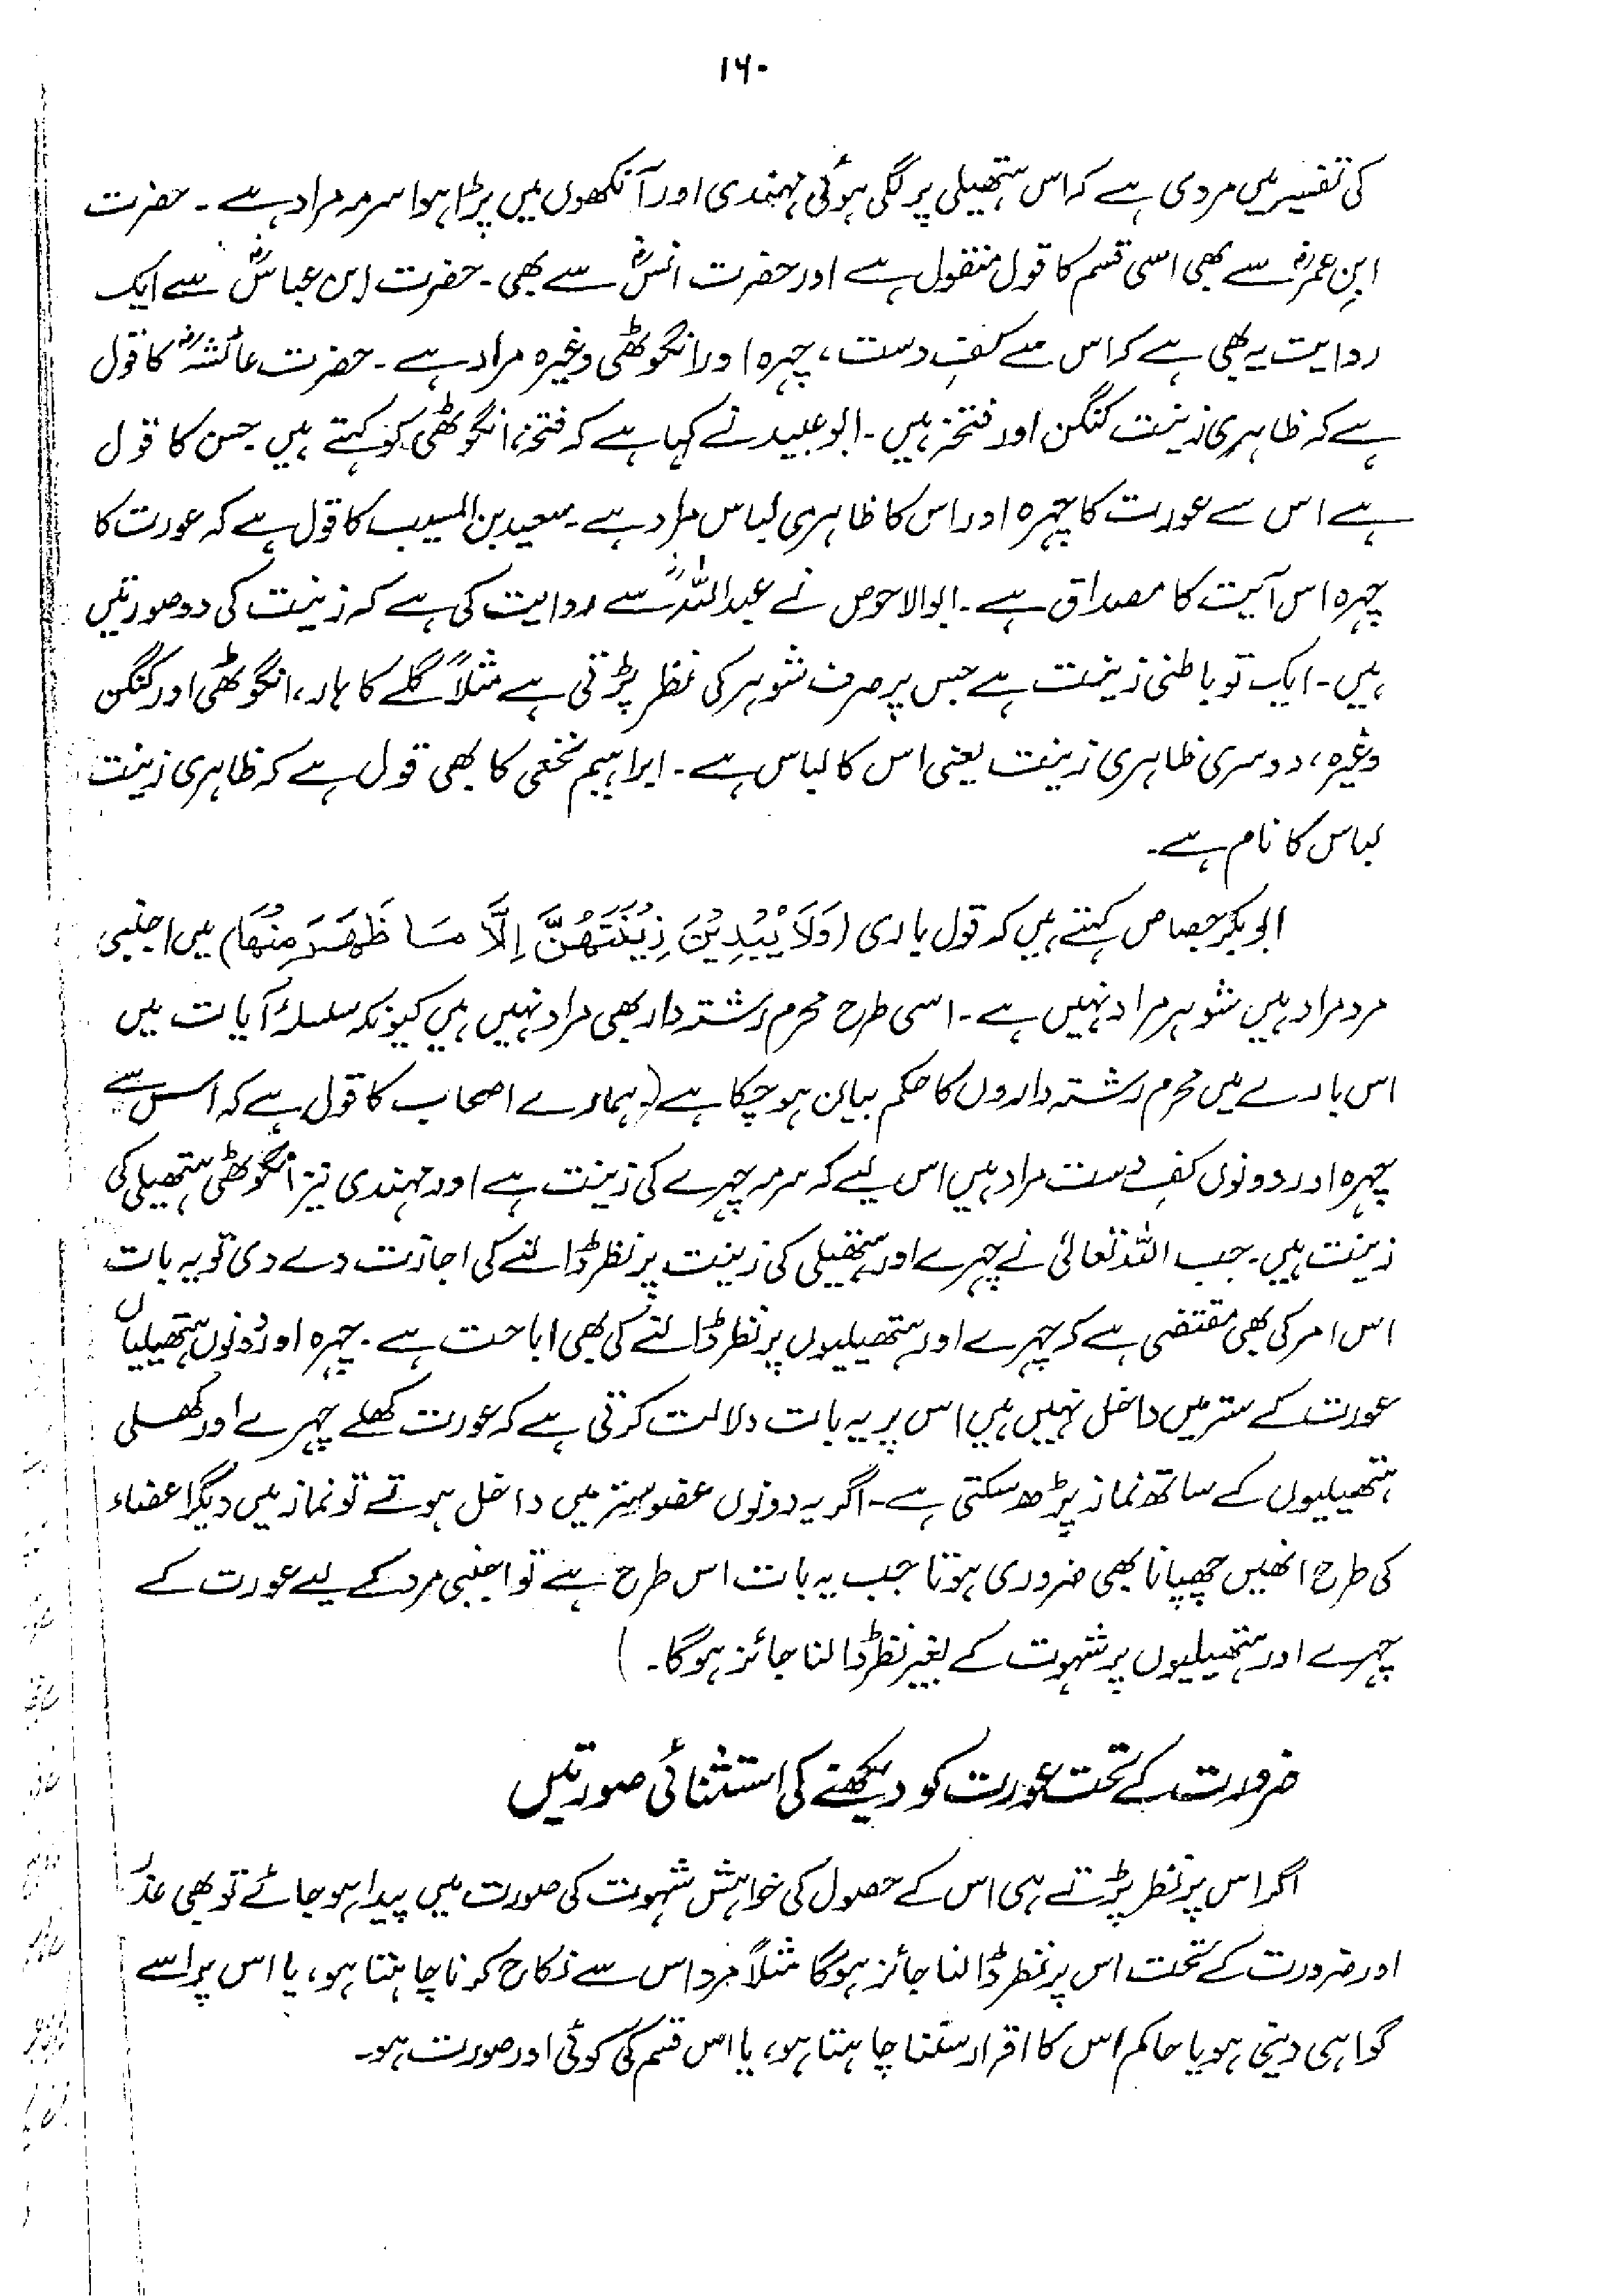 ۱۶۰
کی تفسیر میں مروی ہے کہ اس ہتھیلی پر لگی ہوئی مہندی اور آنکھوں میں پڑا ہوا سرمہ مراد ہے۔ حضرت
ابن عمرؓ سے بھی اسی قسم کا قول منقول ہے اور حضرت انسؓ سے بھی۔ حضرت ابن عباسؓ سے ایک
روایت یہ بھی ہے کہ اس سے کفِ دست، چہرہ اور انگوٹھی وغیرہ مراد ہے۔ حضرت عائشہؓ کا قول
ہے کہ ظاہری زینت کنگن اور فتخہ ہیں۔ ابو عبید نے کہا ہے کہ فتخہ، انگوٹھی کو کہتے ہیں۔ حسن کا قول
ہے اس سے عورت کا چہرہ اور اس کا ظاہری لباس مراد ہے۔ سعید بن المسیب کا قول ہے کہ عورت کا
چہرہ اس آیت کا مصداق ہے۔ ابوالاحوص نے عبداللہؓ سے روایت کی ہے کہ زینت کی دو صورتیں
ہیں۔ ایک تو باطنی زینت ہے جس پر صرف شوہر کی نظر پڑتی ہے مثلاً گلے کا ہار، انگوٹھی اور کنگن
وغیرہ، دوسری ظاہری زینت یعنی اس کا لباس ہے۔ ابراہیم نخعی کا بھی قول ہے کہ ظاہری زینت
لباس کا نام ہے۔
ابوبکر جصاص کہتے ہیں کہ قول باری (وَلَا یُبْدِیْنَ زِیْنَتَھُنَّ اِلَّا مَا ظَھَرَ مِنْھَا) میں اجنبی
مرد مراد ہیں شوہر مراد نہیں ہے۔ اسی طرح محرم رشتہ دار بھی مراد نہیں ہیں کیونکہ سلسلۂ آیات میں
اس بارے میں محرم رشتہ داروں کا حکم بیان ہو چکا ہے (ہمارے اصحاب کا قول ہے کہ اس سے
چہرہ اور دونوں کفِ دست مراد ہیں اس لیے کہ سرمہ چہرے کی زینت ہے اور مہندی نیز انگوٹھی ہتھیلی کی
زینت ہیں۔ جب اللہ تعالیٰ نے چہرے اور ہتھیلی کی زینت پر نظر ڈالنے کی اجازت دے دی تو یہ بات
اس امر کی بھی مقتضی ہے کہ چہرے اور ہتھیلیوں پر نظر ڈالنے کی بھی اباحت ہے۔ چہرہ اور دونوں ہتھیلیاں
عورت کے ستر میں داخل نہیں ہیں اس پر یہ بات دلالت کرتی ہے کہ عورت کھلے چہرے اور کھلی
ہتھیلیوں کے ساتھ نماز پڑھ سکتی ہے۔ اگر یہ دونوں عضو ستر میں داخل ہوتے تو نماز میں دیگر اعضاء
کی طرح انھیں چھپانا بھی ضروری ہوتا جب یہ بات اس طرح ہے تو اجنبی مرد کے لیے عورت کے
چہرے اور ہتھیلیوں پر شہوت کے بغیر نظر ڈالنا جائز ہوگا۔)
ضرورت کے تحت عورت کو دیکھنے کی استثنائی صورتیں
اگر اس پر نظر پڑتے ہی اس کے حصول کی خواہش شہوت کی صورت میں پیدا ہو جائے تو بھی عذر
اور ضرورت کے تحت اس پر نظر ڈالنا جائز ہوگا مثلاً مرد اس سے نکاح کرنا چاہتا ہو، یا اس پر اسے
گواہی دینی ہو یا حاکم اس کا اقرار سننا چاہتا ہو، یا اس قسم کی کوئی اور صورت ہو۔